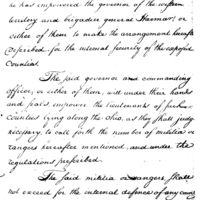 he has empowered the governor of the western
territory and brigadier general Harmar, or
either of them to make the arrangement herein
described for the internal security of the exposed
Counties
The said governor and commanding
officer, or either of them, will under their hands
and seals, empower the lieutenants of such
counties lying along the Ohio, as they shall judge
necessary, to call forth the number of militia or
rangers hereafter mentioned and under the
regulations prescribed.
The said militia or rangers, shall
not exceed for the internal defence of any county